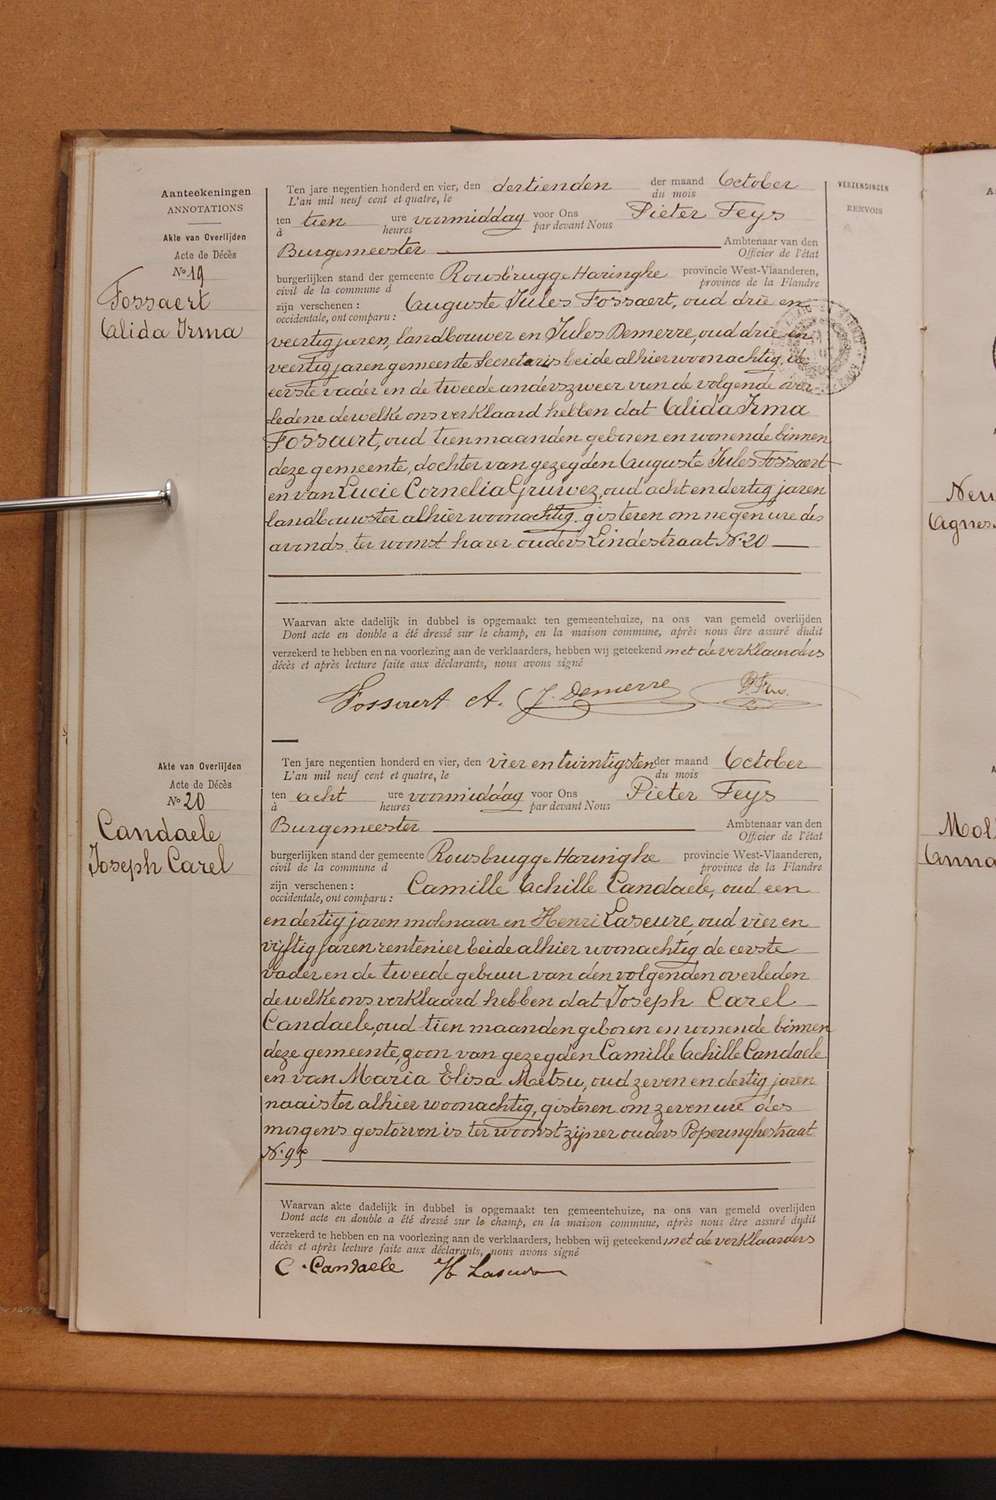 Aanteekeningen
ANNOTATIONS
Akte van Overlijden
Acte de Décès
No 19
Fossaert
Alida Irma
Ten jare negentien honderd en vier, den dertienden der maand October
L'an mil neuf cent et quatre, le du mois
ten tien ure voormiddag voor Ons Pieter Feys
à heures par devant Nous
Burgemeester Ambtenaar van den
Officier de l'état
burgerlijken stand der gemeente Rousbrugge Haringhe provincie West-Vlaanderen,
civil de la commune d province de la Flandre
zijn verschenen : Auguste Jules Fossaert, oud drie en
occidentale, ont comparu :
veertig jaren, landbouwer en Jules Demerre, oud drie en
veertig jaren gemeente Secretaris beide alhier woonachtig, de
eerste vader en de tweede anderszweer van de volgende over
ledene dewelke ons verklaard hebben dat Alida Irma
Fossaert, oud tien maanden geboren en wonende binnen
deze gemeente, dochter van gezegden Auguste Jules Fossaert
en van Lucie Cornelia Gruwez, oud acht en dertig jaren
landbouwster alhier woonachtig, gisteren om negen ure des
avonds ter woonst harer ouders Lindestraat No 20
Waarvan akte dadelijk in dubbel is opgemaakt ten gemeentehuize, na ons van gemeld overlijden
Dont acte en double a été dressé sur le champ, en la maison commune, après nous être assuré dudit
verzekerd te hebben en na voorlezing aan de verklaarders, hebben wij geteekend met de verklaarders
décès et après lecture faite aux déclarants, nous avons signé
Fossaert A. J. Demerre
Akte van Overlijden
Acte de Décès
No 20
Candaele
Joseph Carel
Ten jare negentien honderd en vier, den vier en twintigsten der maand October
L'an mil neuf cent et quatre, le du mois
ten acht ure voormiddag voor Ons Pieter Feys
à heures par devant Nous
Burgemeester Ambtenaar van den
Officier de l'état
burgerlijken stand der gemeente Rousbrugge Haringhe provincie West-Vlaanderen,
civil de la commune d province de la Flandre
zijn verschenen : Camille Achille Candaele, oud een
occidentale, ont comparu :
en dertig jaren molenaar en Henri Laseure, oud vier en
vijftig jaren rentenier beide alhier woonachtig de eerste
vader en de tweede gebuur van den volgenden overleden
dewelke ons verklaard hebben dat Joseph Carel
Candaele, oud tien maanden geboren en wonende binnen
deze gemeente, zoon van gezegden Camille Achille Candaele
en van Maria Elisa Metsu, oud zeven en dertig jaren
naaister alhier woonachtig, gisteren om zeven ure des
morgens gestorven is ter woonst zijner ouders Poperinghestraat
No 95
Waarvan akte dadelijk in dubbel is opgemaakt ten gemeentehuize, na ons van gemeld overlijden
Dont acte en double a été dressé sur le champ, en la maison commune, après nous être assuré dudit
verzekerd te hebben en na voorlezing aan de verklaarders, hebben wij geteekend met de verklaarders
décès et après lecture faite aux déclarants, nous avons signé
C. Candaele H Laseure
VERZENDINGEN
RENVOIS
Agnes
Anna